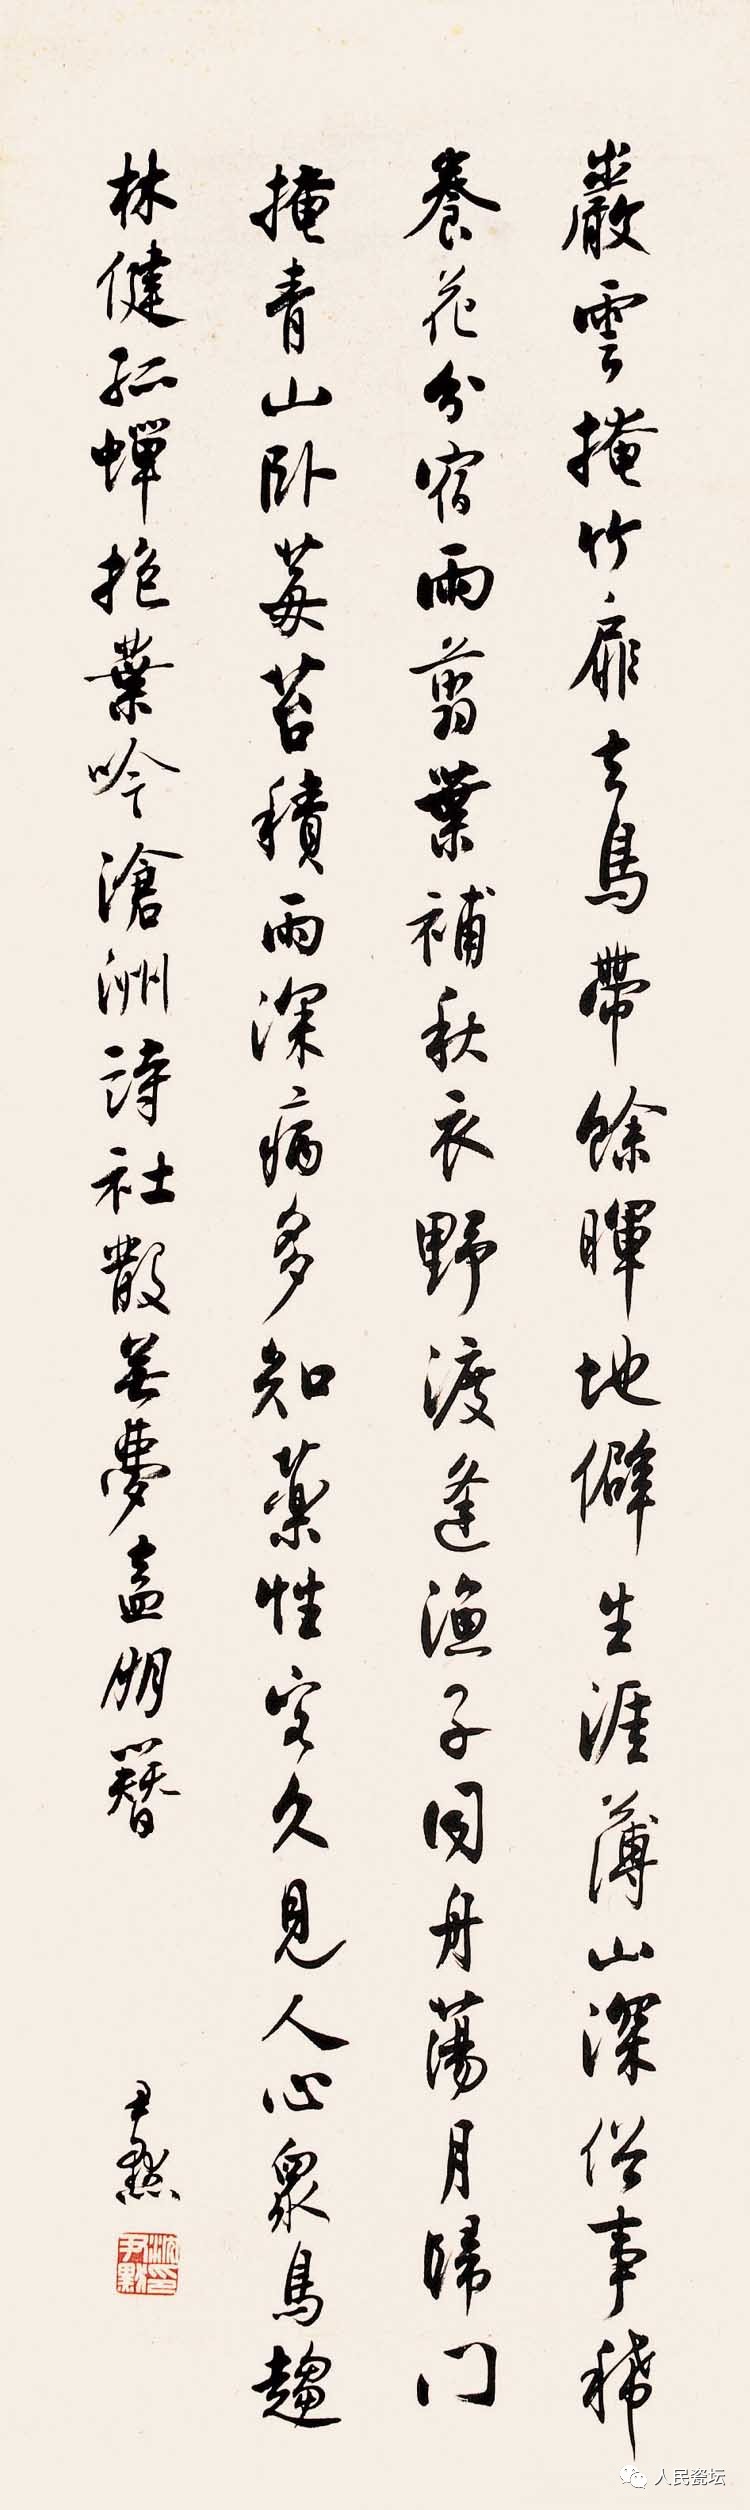 巖雲掩竹扉去鳥帶餘暉地僻生涯薄山深俗事稀
養花分宿雨翦葉補秋衣野渡逢漁子同舟蕩月歸门
掩青山卧莓苔積雨深病多知藥性客久見人心眾鳥趨
林健孤蟬抱葉吟滄洲詩社散無夢盍朋簪
尹默
沈尹默印
人民瓷坛